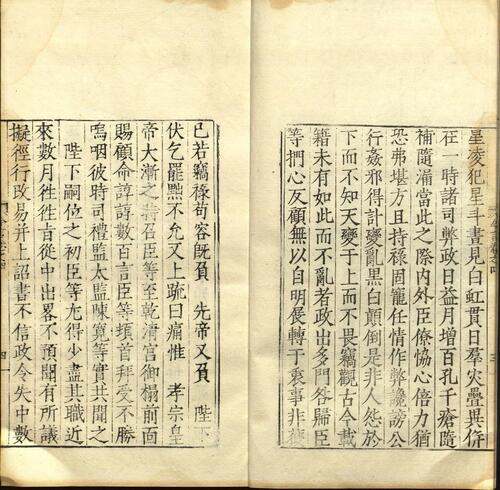 星凌犯星斗晝見白虹貫日羣灾疊異併
在一時諸司弊政日益月增百孔千瘡隨
補隨漏當此之際内外臣僚恊心倍力猶
恐弗堪方且持祿固寵任情作弊讒謗公
行姦邪得計變亂黑白顛倒是非人怨於
下而不知天變于上而不畏竊觀古今載
籍未有如此而不亂者政出多門咎歸臣
等捫心反顧無以自明展轉于衷事非獲
已若竊祿苟容旣負 先帝又負 陛下
伏乞罷黜不允又上疏曰痛惟 孝宗皇
帝大漸之時召臣等至乾清宫御榻前面
賜顧命諄諄數百言臣等頓首拜受不勝
嗚咽彼時司禮監太監陳寬等實共聞之
陛下嗣位之初臣等尤得少盡其職近
來數月徃徃㫖從中出畧不預聞有所議
擬徑行改易并上詔書不信政令失中數